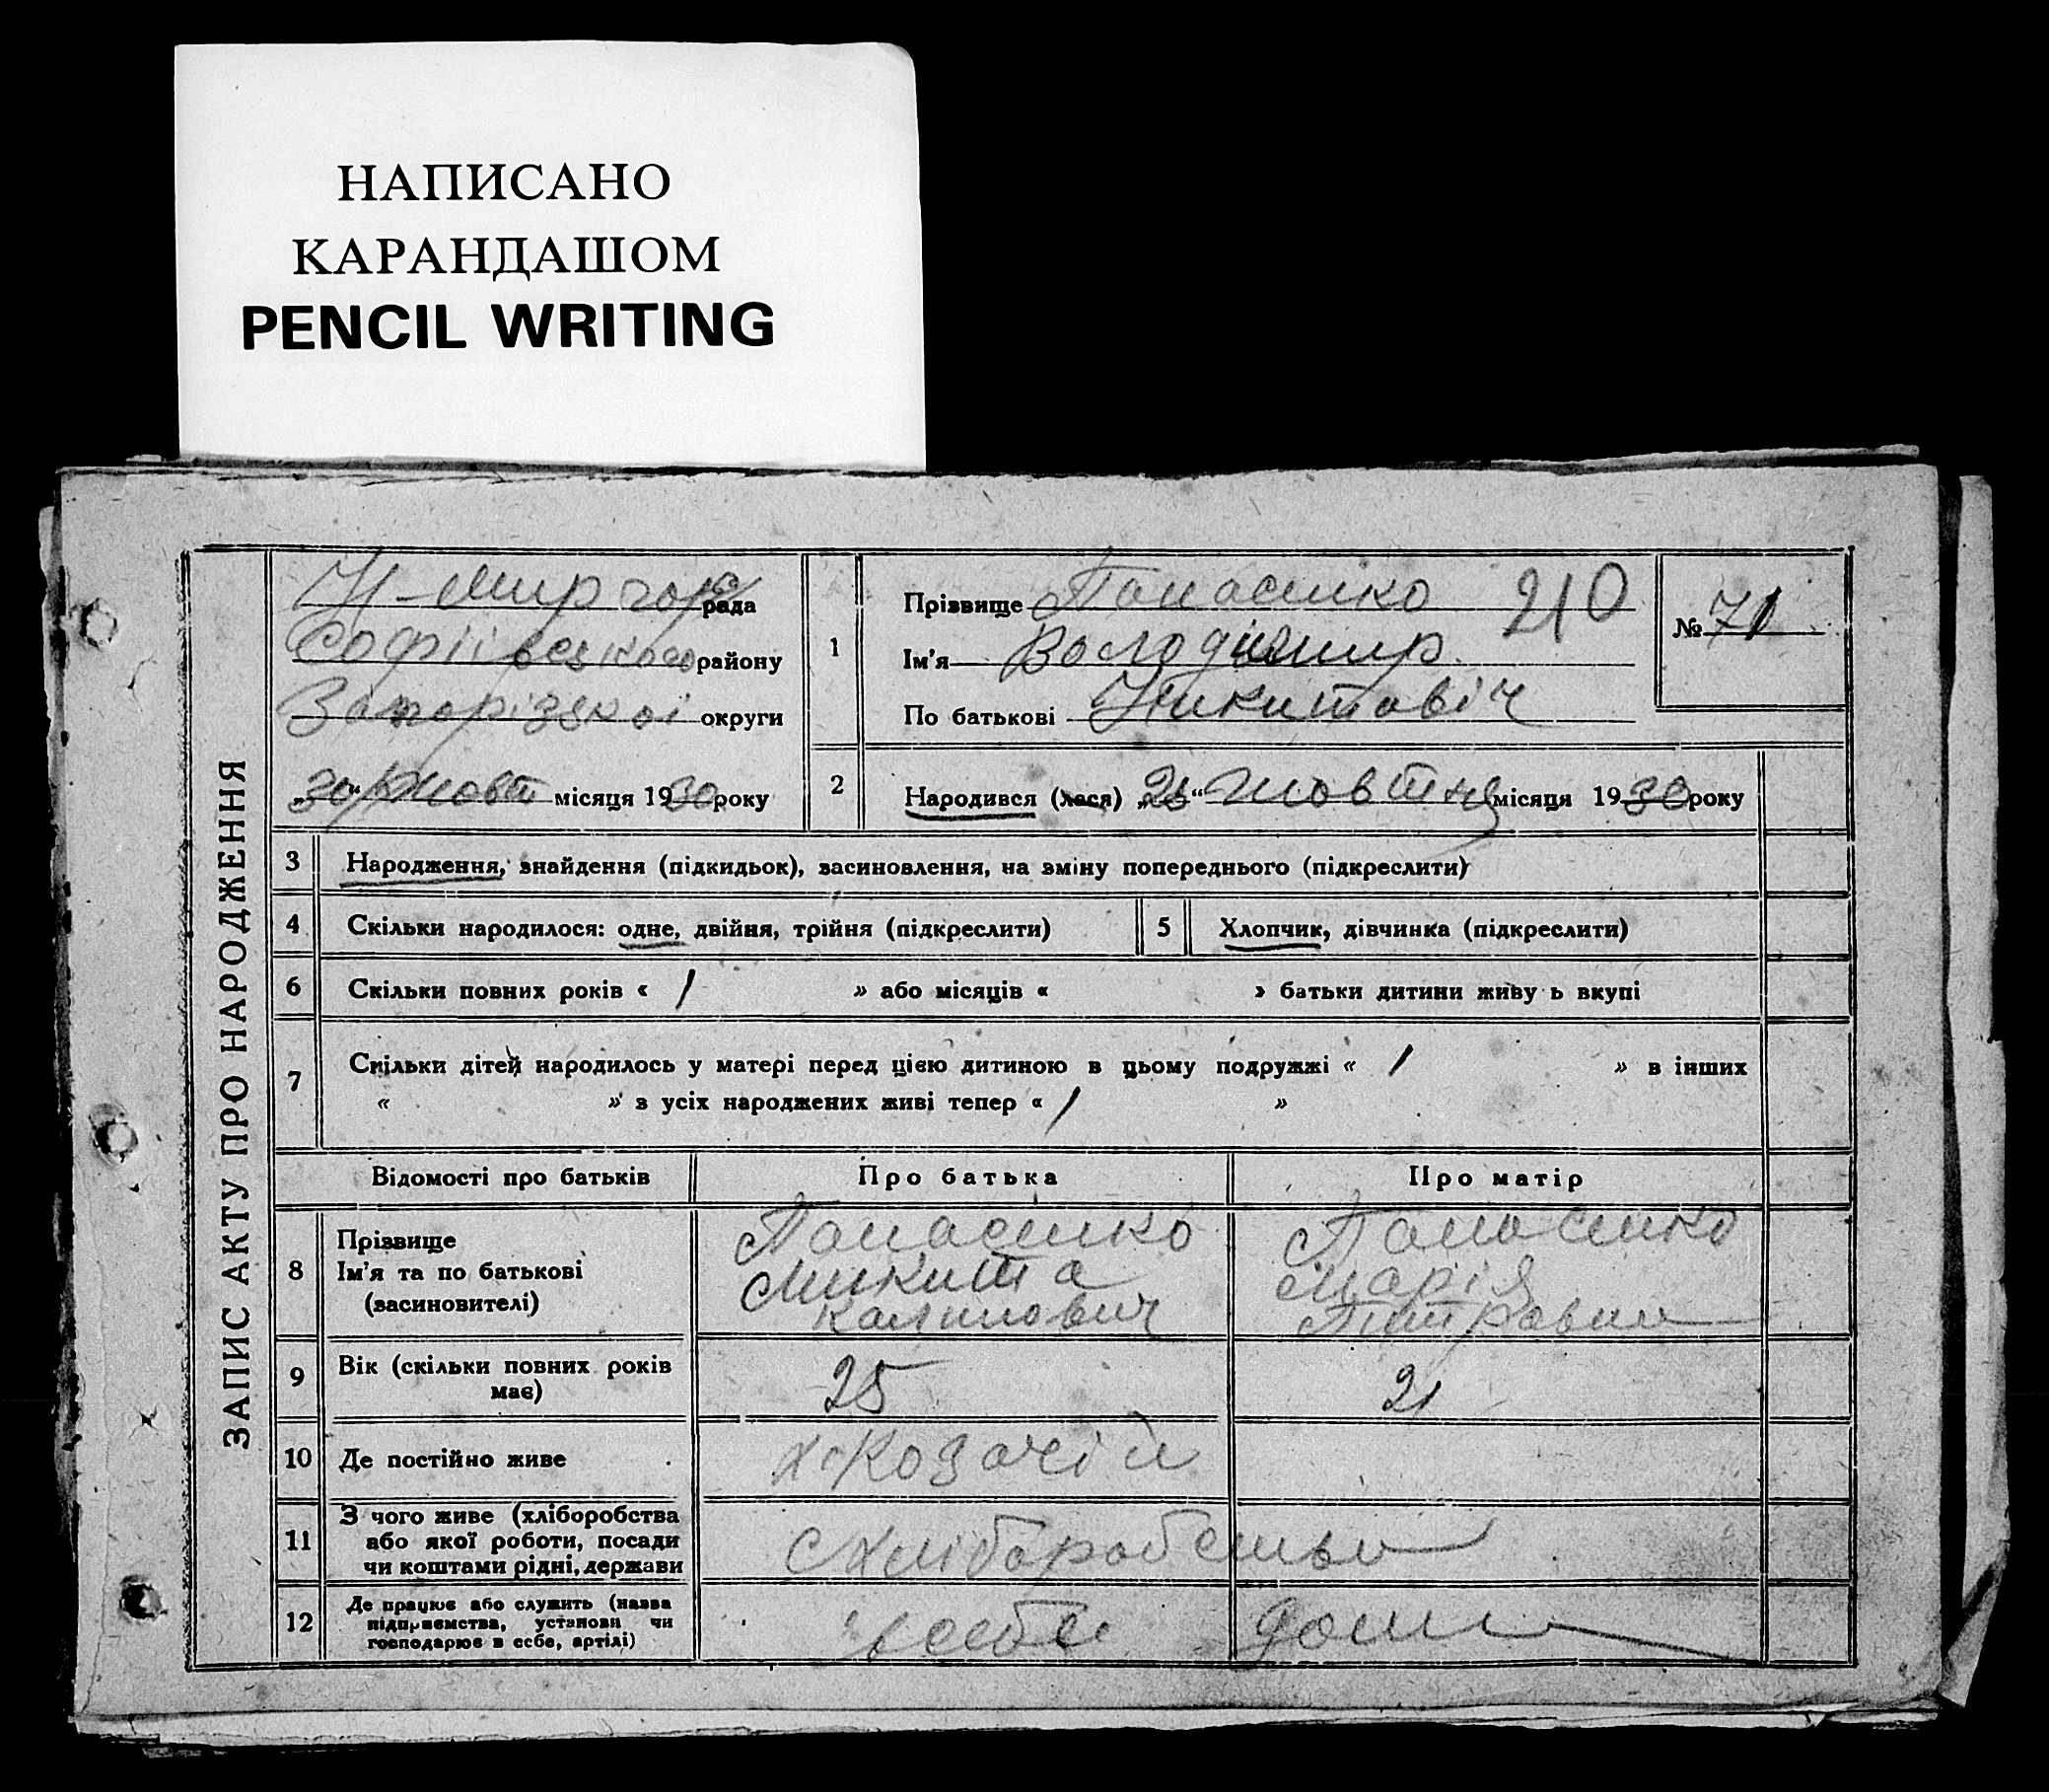 НАПИСАНО
КАРАНДАШОМ
PENCIL WRITING
ЗАПИС АКТУ ПРО НАРОДЖЕННЯ
рада
Софіївського району
Запорізкоі округи
„30“ Жовт місяця 1930 року
1
Прізвище Панасенко 210
Ім'я Володімир
По батькові Никитовіч
№ 71
2
Народився (лася) „ “ жовтня місяця 1930 року
3 Народження, знайдення (підкидьок), засиновлення, на зміну попереднього (підкреслити)
4 Скільки народилося: одне, двійня, трійня (підкреслити)
5 Хлопчик, дівчинка (підкреслити)
6 Скільки повних років « 1 » або місяців « » батьки дитини живу ь вкупі
7 Скільки дітей народилось у матері перед цією дитиною в цьому подружжі « 1 » в інших
« » з усіх народжених живі тепер « 1 »
Відомості про батьків Про батька Про матір
8 Прізвище Панасенко Панасенко
Ім'я та по батькові Микита Марія
(засиновителі) Калинович
9 Вік (скільки повних років має) 25 21
10 Де постійно живе х Козачій
11 З чого живе (хліборобства
або якої роботи, посади
чи коштами рідні, держави
12 Де працює або служить (назва
підприємства, установи чи
господарює в себе, артілі)